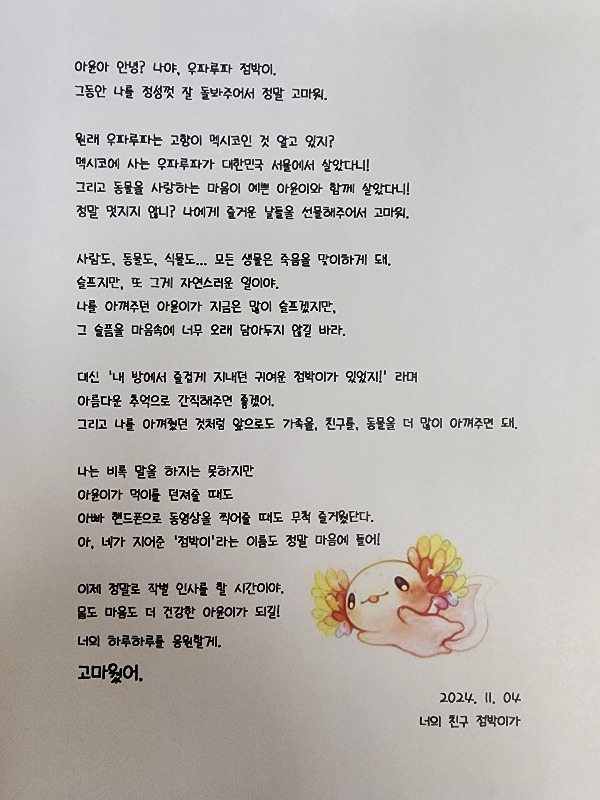 아윤아 안녕? 나야, 우파루파 점박이.
그동안 나를 정성껏 잘 돌봐주어서 정말 고마워.
원래 우파루파는 고향이 멕시코인 것 알고 있지?
멕시코에 사는 우파루파가 대한민국 서울에서 살았다니!
그리고 동물을 사랑하는 마음이 예쁜 아윤이와 함께 살았다니!
정말 멋지지 않니? 나에게 즐거운 날들을 선물해주어서 고마워.
사람도, 동물도, 식물도... 모든 생물은 죽음을 맞이하게 돼.
슬프지만, 또 그게 자연스러운 일이야.
나를 아껴주던 아윤이가 지금은 많이 슬프겠지만,
그 슬픔을 마음속에 너무 오래 담아두지 않길 바라.
대신 '내 방에서 즐겁게 지내던 귀여운 점박이가 있었지!' 라며
아름다운 추억으로 간직해주면 좋겠어.
그리고 나를 아껴줬던 것처럼 앞으로도 가족을, 친구를, 동물을 더 많이 아껴주면 돼.
나는 비록 말을 하지는 못하지만
아윤이가 먹이를 던져줄 때도
아빠 핸드폰으로 동영상을 찍어줄 때도 무척 즐거웠단다.
아, 네가 지어준 '점박이'라는 이름도 정말 마음에 들어!
이제 정말로 작별 인사를 할 시간이야.
몸도 마음도 더 건강한 아윤이가 되길!
너의 하루하루를 응원할게.
고마웠어.
2024. 11. 04
너의 친구 점박이가